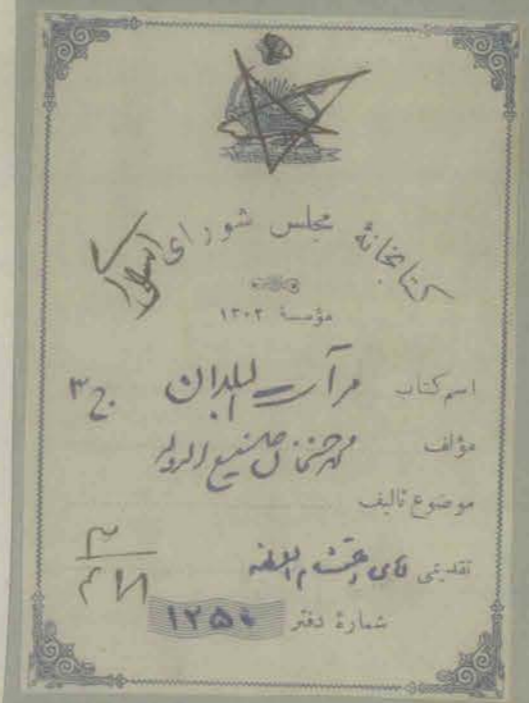 کتابخانهٔ مجلس شورای اسلامی
مؤسسهٔ ۱۳۰۲
اسم کتاب مرآت البلدان ج ۳
مؤلف محمد حسنخان صنیع الدوله
موضوع تألیف
تقدیمی آقای
۳
۴۸۱
شمارهٔ دفتر ۱۲۵۰